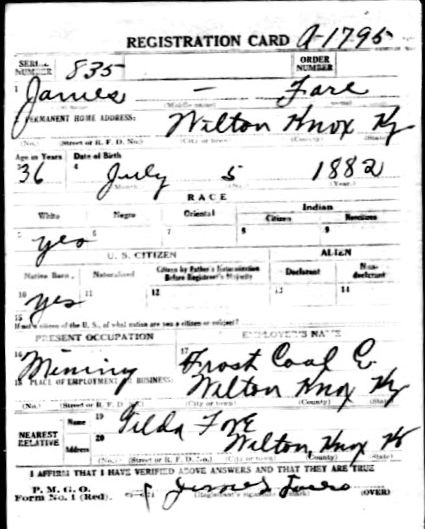 REGISTRATION CARD A-1795
SERIAL NUMBER 835 ORDER NUMBER
1 James — Fore
(Middle name)
2 PERMANENT HOME ADDRESS: Wilton Knox Ky
(No.) (Street or R. F. D. No.) (City or town) (County) (State)
Age in Years Date of Birth
36 4 July 5 1882
(Month) (Year.)
RACE
White Negro Oriental Indian
Citizen Noncitizen
5 yes 6 7 8 9
U. S. CITIZEN ALIEN
Native Born Naturalized Citizen by Father's Naturalization Before Registrant's Majority Declarant Non-declarant
10 yes 11 12 13 14
15
If not a citizen of the U. S., of what nation are you a citizen or subject?
PRESENT OCCUPATION EMPLOYER'S NAME
16 Mining 17 Frost Coal C.
18 PLACE OF EMPLOYMENT OR BUSINESS: Wilton Knox Ky
(No.) (Street or R. F. D. No.) (City or town) (County) (State)
NEAREST RELATIVE Name 19 Tilda Fore
Address 20 Wilton Knox Ky
I AFFIRM THAT I HAVE VERIFIED ABOVE ANSWERS AND THAT THEY ARE TRUE
P. M. G. O.
Form No. 1 (Red) James
(Registrant's signature or mark) (OVER)